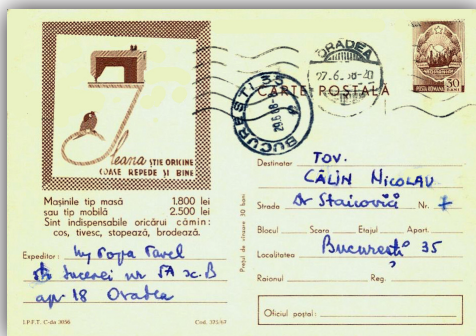 Ileana ȘTIE ORICINE
COASE REPEDE ȘI BINE
Mașinile tip masă 1.800 lei
sau tip mobilă 2.500 lei
Sînt indispensabile oricărui cămin:
cos, tivesc, stopează, brodează.
Expeditor: Ing Popa Pavel
Sucevei nr 5A sc. B
apr 18 Oradea
I.P.F.T. C-da 3056
Cod.
ORADEA
27.6.68-20
BUCUREȘTI 35
29.6.68
POSTA ROMANA
30
BANI
CARTE POȘTALĂ
Prețul de vînzare 30 bani
Destinatar TOV.
CĂLIN NICOLAU
Strada Dr Staicovici Nr. 7
Blocul Scara Etajul Apart.
Localitatea București 35
Raionul Reg.
Oficiul poștal: